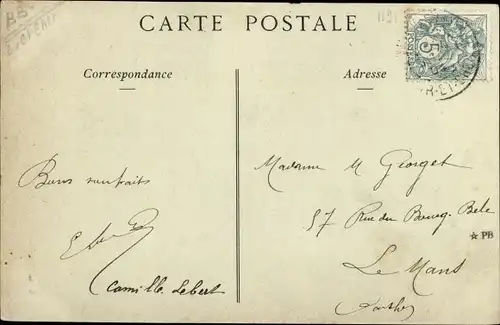 CARTE POSTALE
Correspondance
Adresse
5
Bons souhaits
Camille Lebert
Madame M Georget
57 Rue du Bourg Belé
Le Mans
Sarthe
★ PB